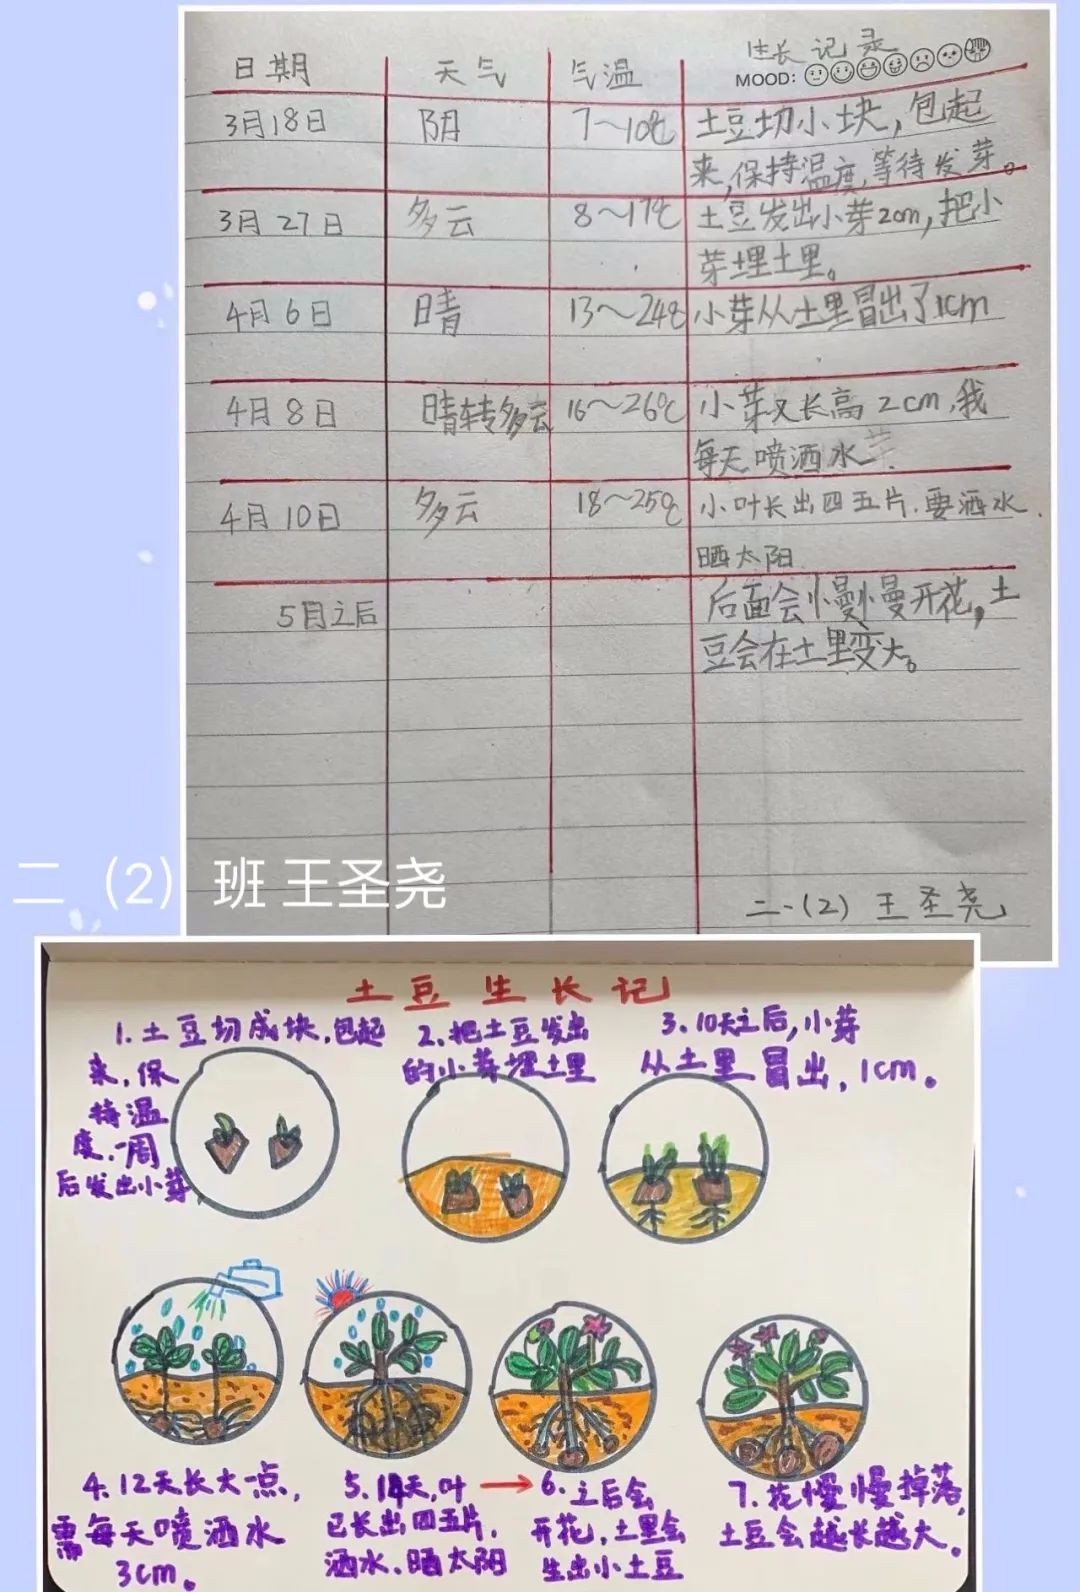 生长记录
日期 天气 气温 MOOD:
3月18日 阴 7~10℃ 土豆切小块,包起
来,保持温度,等待发芽。
3月27日 多云 8~17℃ 土豆发出小芽2cm,把小
芽埋土里。
4月6日 晴 13~24℃ 小芽从土里冒出了1cm
4月8日 晴转多云 16~26℃ 小芽又长高2cm,我
每天喷洒水.
4月10日 多云 18~25℃ 小叶长出四五片.要洒水.
晒太阳.
5月之后 后面会慢慢开花,土
豆会在土里变大。
二(2)班 王圣尧
二、(2) 王圣尧
土豆生长记
1.土豆切成块,包起
来,保
持温
度.一周
后发出小芽
2.把土豆发出
的小芽埋土里
3.10天之后,小芽
从土里冒出,1cm。
4.12天长大一点,
需每天喷洒水
3cm。
5.14天,叶
已长出四五片,
洒水.晒太阳
6.之后会
开花,土里会
生出小土豆
7.花慢慢掉落,
土豆会越长越大。